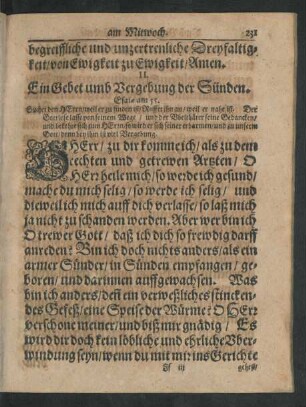 am Mitwoch. 231
begreiffliche und unzertrenliche Dreyfaltig-
keit/ von Ewigkeit zu Ewigkeit/ Amen.
II.
Ein Gebet umb Vergebung der Sünden.
Esaiæ am 55.
Suchet den HErrn/ weil er zu finden ist/ Ruffet ihn an/ weil er nahe ist. Der
Gottlose lasse von seinem Wege / und der Ubelthäter seine Gedancken/
und bekehre sich zum HErrn/ so wird er sich seiner erbarmen/ und zu unserm
Gott/ denn bey ihm ist viel Vergebung.
O HErr/ zu dir komme ich/ als zu dem
rechten und getrewen Artzten/ O
HErr heile mich/ so werde ich gesund/
mache du mich selig/ so werde ich selig/ und
dieweil ich mich auff dich verlasse/ so laß mich
ja nicht zu schanden werden. Aber wer bin ich
O trewer Gott/ daß ich dich so frewdig darff
anreden? Bin ich doch nichts anders/ als ein
armer Sünder/ in Sünden empfangen/ ge-
boren/ und darinnen auffgewachsen. Was
bin ich anders/ denn ein verweßliches stincken-
des Gefeß/ eine Speise der Würme? O HErr
verschone meiner/ und biß mir gnädig/ Es
wird dir doch kein löbliche und ehrliche Uber-
windung seyn/ wenn du mit mir ins Gerichte
gehest/